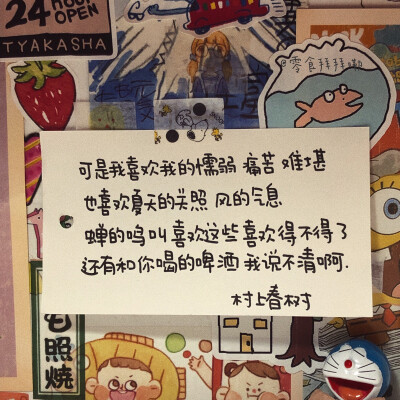 24 HOUR
OPEN
TYAKASHA
零食拜拜嘞
可是我喜欢我的懦弱 痛苦 难堪
也喜欢夏天的关照 风的气息
蝉的鸣叫喜欢这些喜欢得不得了
还有和你喝的啤酒 我说不清啊.
村上春树
照燒